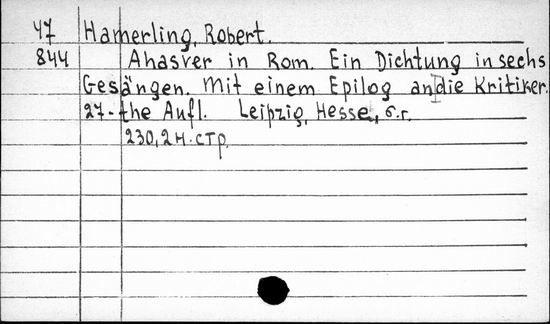 47 Hamerling, Robert.
844 Ahasver in Rom. Ein Dichtung in sechs
Gesängen. Mit einem Epilog an die Kritiker.
27-the Aufl. Leipzig, Hesse, б.г.
230, 2 н. стр.